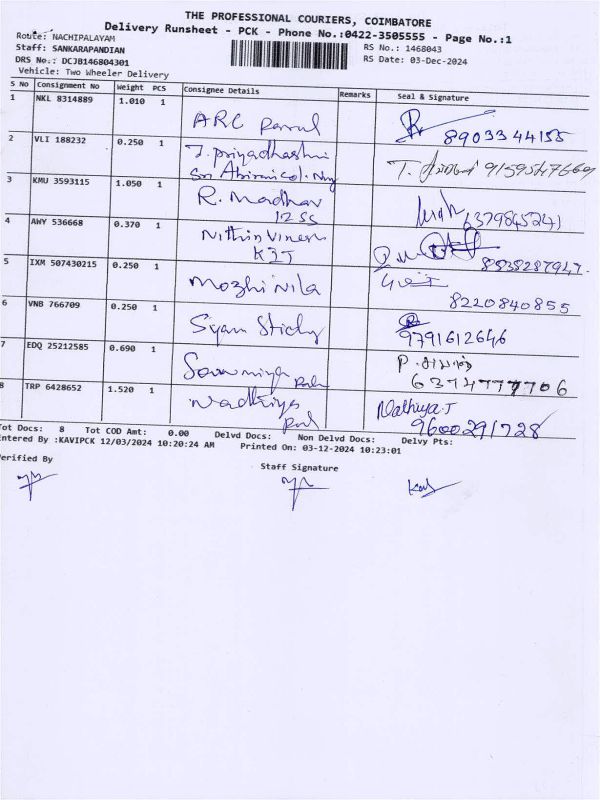 THE PROFESSIONAL COURIERS, COIMBATORE
Delivery Runsheet - PCK - Phone No.:0422-3505555 - Page No.:1
Route: NACHIPALAYAM
RS No: 1468043
Staff: SANKARAPANDIAN
RS Date: 03-Dec-2024
DRS No.: DCJB146804301
Vehicle: Two Wheeler Delivery
S No Consignment No Weight PCS Consignee Details Remarks Seal & Signature
1 NKL 8314889 1.010 1 ARC 8903344155
2 VLI 188232 0.250 1 T. Priyadharshini T. 9159547669
Sri
3 KMU 3593115 1.050 1 R. Madhav 6379845241
12 SS
4 AWY 536668 0.370 1 Nithin Vinesh 8838287947
KIT
5 IXM 507430215 0.250 1 Mozhi Nila 8220840855
6 VNB 766709 0.250 1 Syam 9791612646
7 EDQ 25212585 0.690 1 Sowmiya P.
6374777706
8 TRP 6428652 1.520 1 Nadhiya Nathiya.J
9600291728
Tot Docs: 8 Tot COD Amt: 0.00 Delvd Docs: Non Delvd Docs: Delvy Pts:
Entered By :KAVIPCK 12/03/2024 10:20:24 AM Printed On: 03-12-2024 10:23:01
Verified By Staff Signature